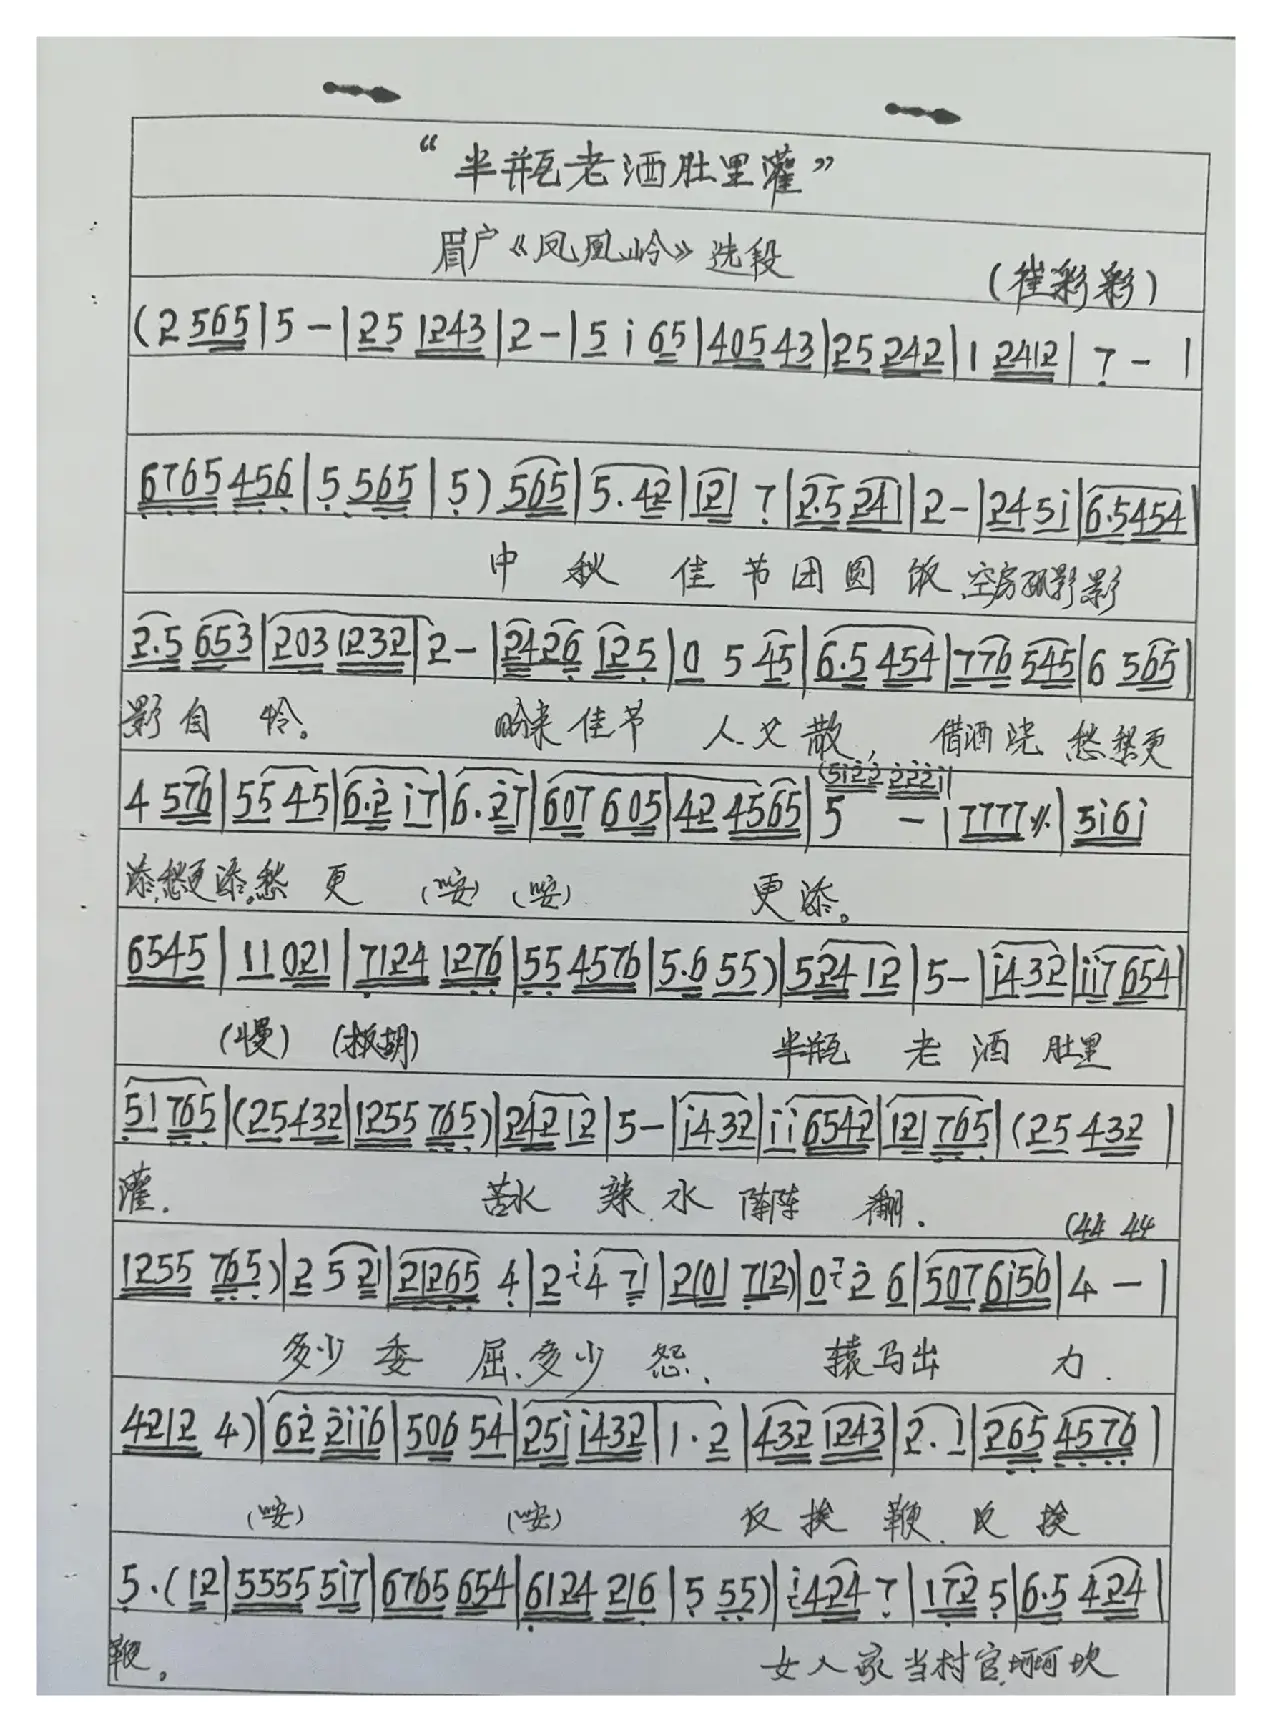 “半瓶老酒肚里灌”
眉户《凤凰岭》选段
(崔彩彩)
(2 565|5 -|25 1243|2-|5 i 65|405 43|25 242|1 2412|7 - |
6765 456|5 565|5) 565|5.42|121 7|2.5 241|2-|245i|6.5454|
中 秋 佳 节 团 圆 饭 空房孤影影
2.5 653|203 1232|2-|2426 125|0 5 45|6.5 454|776 545|6 565|
影 自 怜。 盼来 佳 节 人 又 散, 借酒 浇 愁 愁更
(5i22 222i|
4 576|55 45|6.2 i7|6.27|607 605|42 4565|5 -|7777 ٪|5i6i
添,愁更添,愁 更 (咹) (咹) 更 添。
6545|11 021|7124 1276|55 4576|5.6 55)|524 12|5-|i432|ii7654|
(慢) (板胡) 半瓶 老 酒 肚里
51 765|(25432|1255 765)|242 12|5-|i432|ii6542|121 765|(25 432|
灌. 苦水 辣 水 阵阵 翻.
(44 44
1255 765)|2 5 21|21265 4|2 i4 71|2(01 712)|0 7 2 6|5076i56|4 -|
多少 委 屈,多少 怨、 辕马出 力.
4212 4)|62 2ii6|506 54|25i i432|1 . 2|432 1243|2. 1|265 4576|
(咹) (咹) 反 挨 鞭 反 挨
5.(12|5555 5i7|6765 654|6124 216|5 55)|i424 7|172 5|6.5 424|
鞭。 女 人 家 当村官,坷坷坎